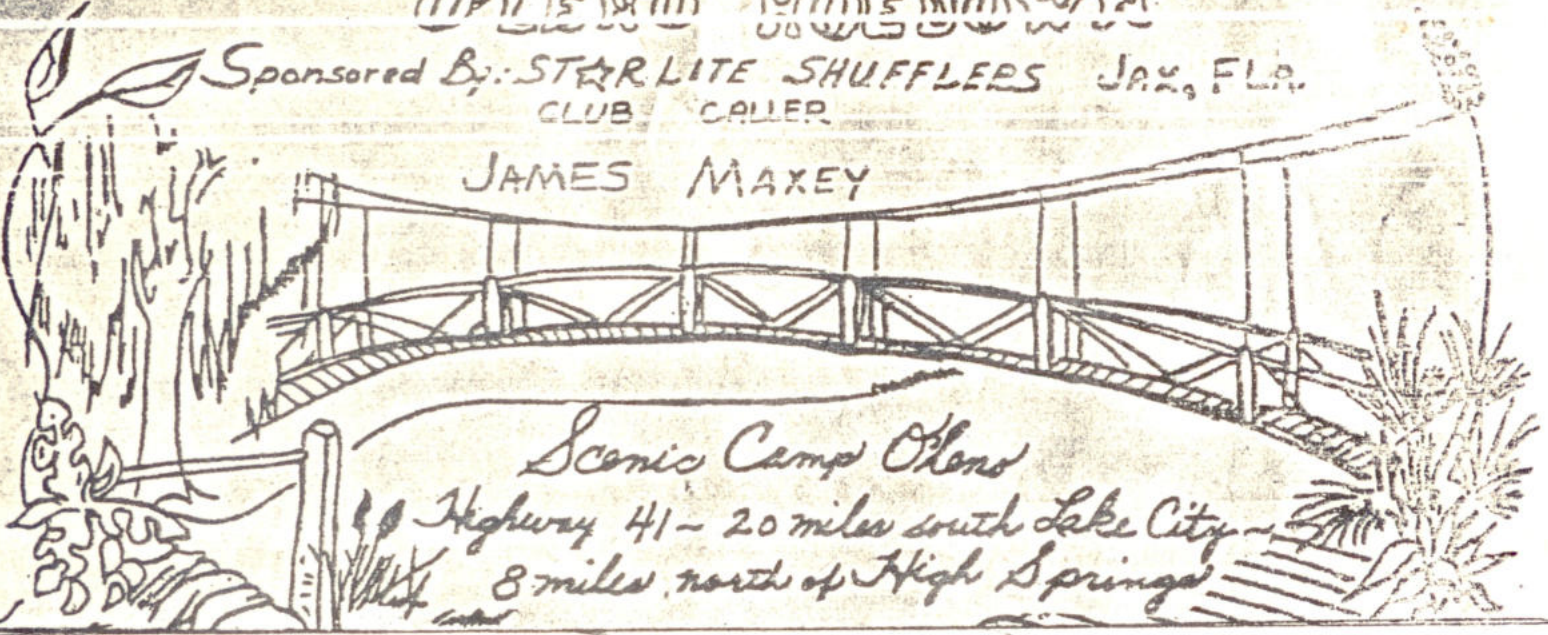 Sponsored By: ST☆R LITE SHUFFLERS JAX, FLA.
CLUB CALLER
JAMES MAXEY
Scenic Camp O'Leno
Highway 41 - 20 miles south Lake City -
8 miles north of High Springs